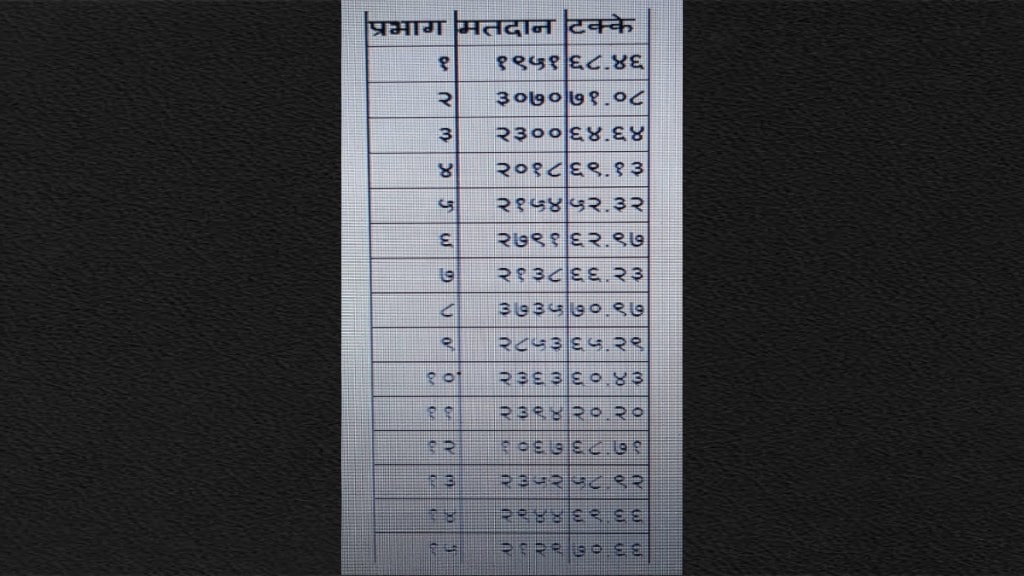 प्रभाग मतदान टक्के
१ १९५१ ६८.४६
२ ३०७० ७१.०८
३ २३०० ६४.६४
४ २०१८ ६९.१३
५ २१५४ ५२.३२
६ २७९१ ६२.९७
७ २१३८ ६६.२३
८ ३७३५ ७०.९७
९ २८५३ ६५.२९
१० २३६३ ६०.४३
११ २३९४ २०.२०
१२ ६८.७१
१३ २३५२ ५८.९२
१४
१५